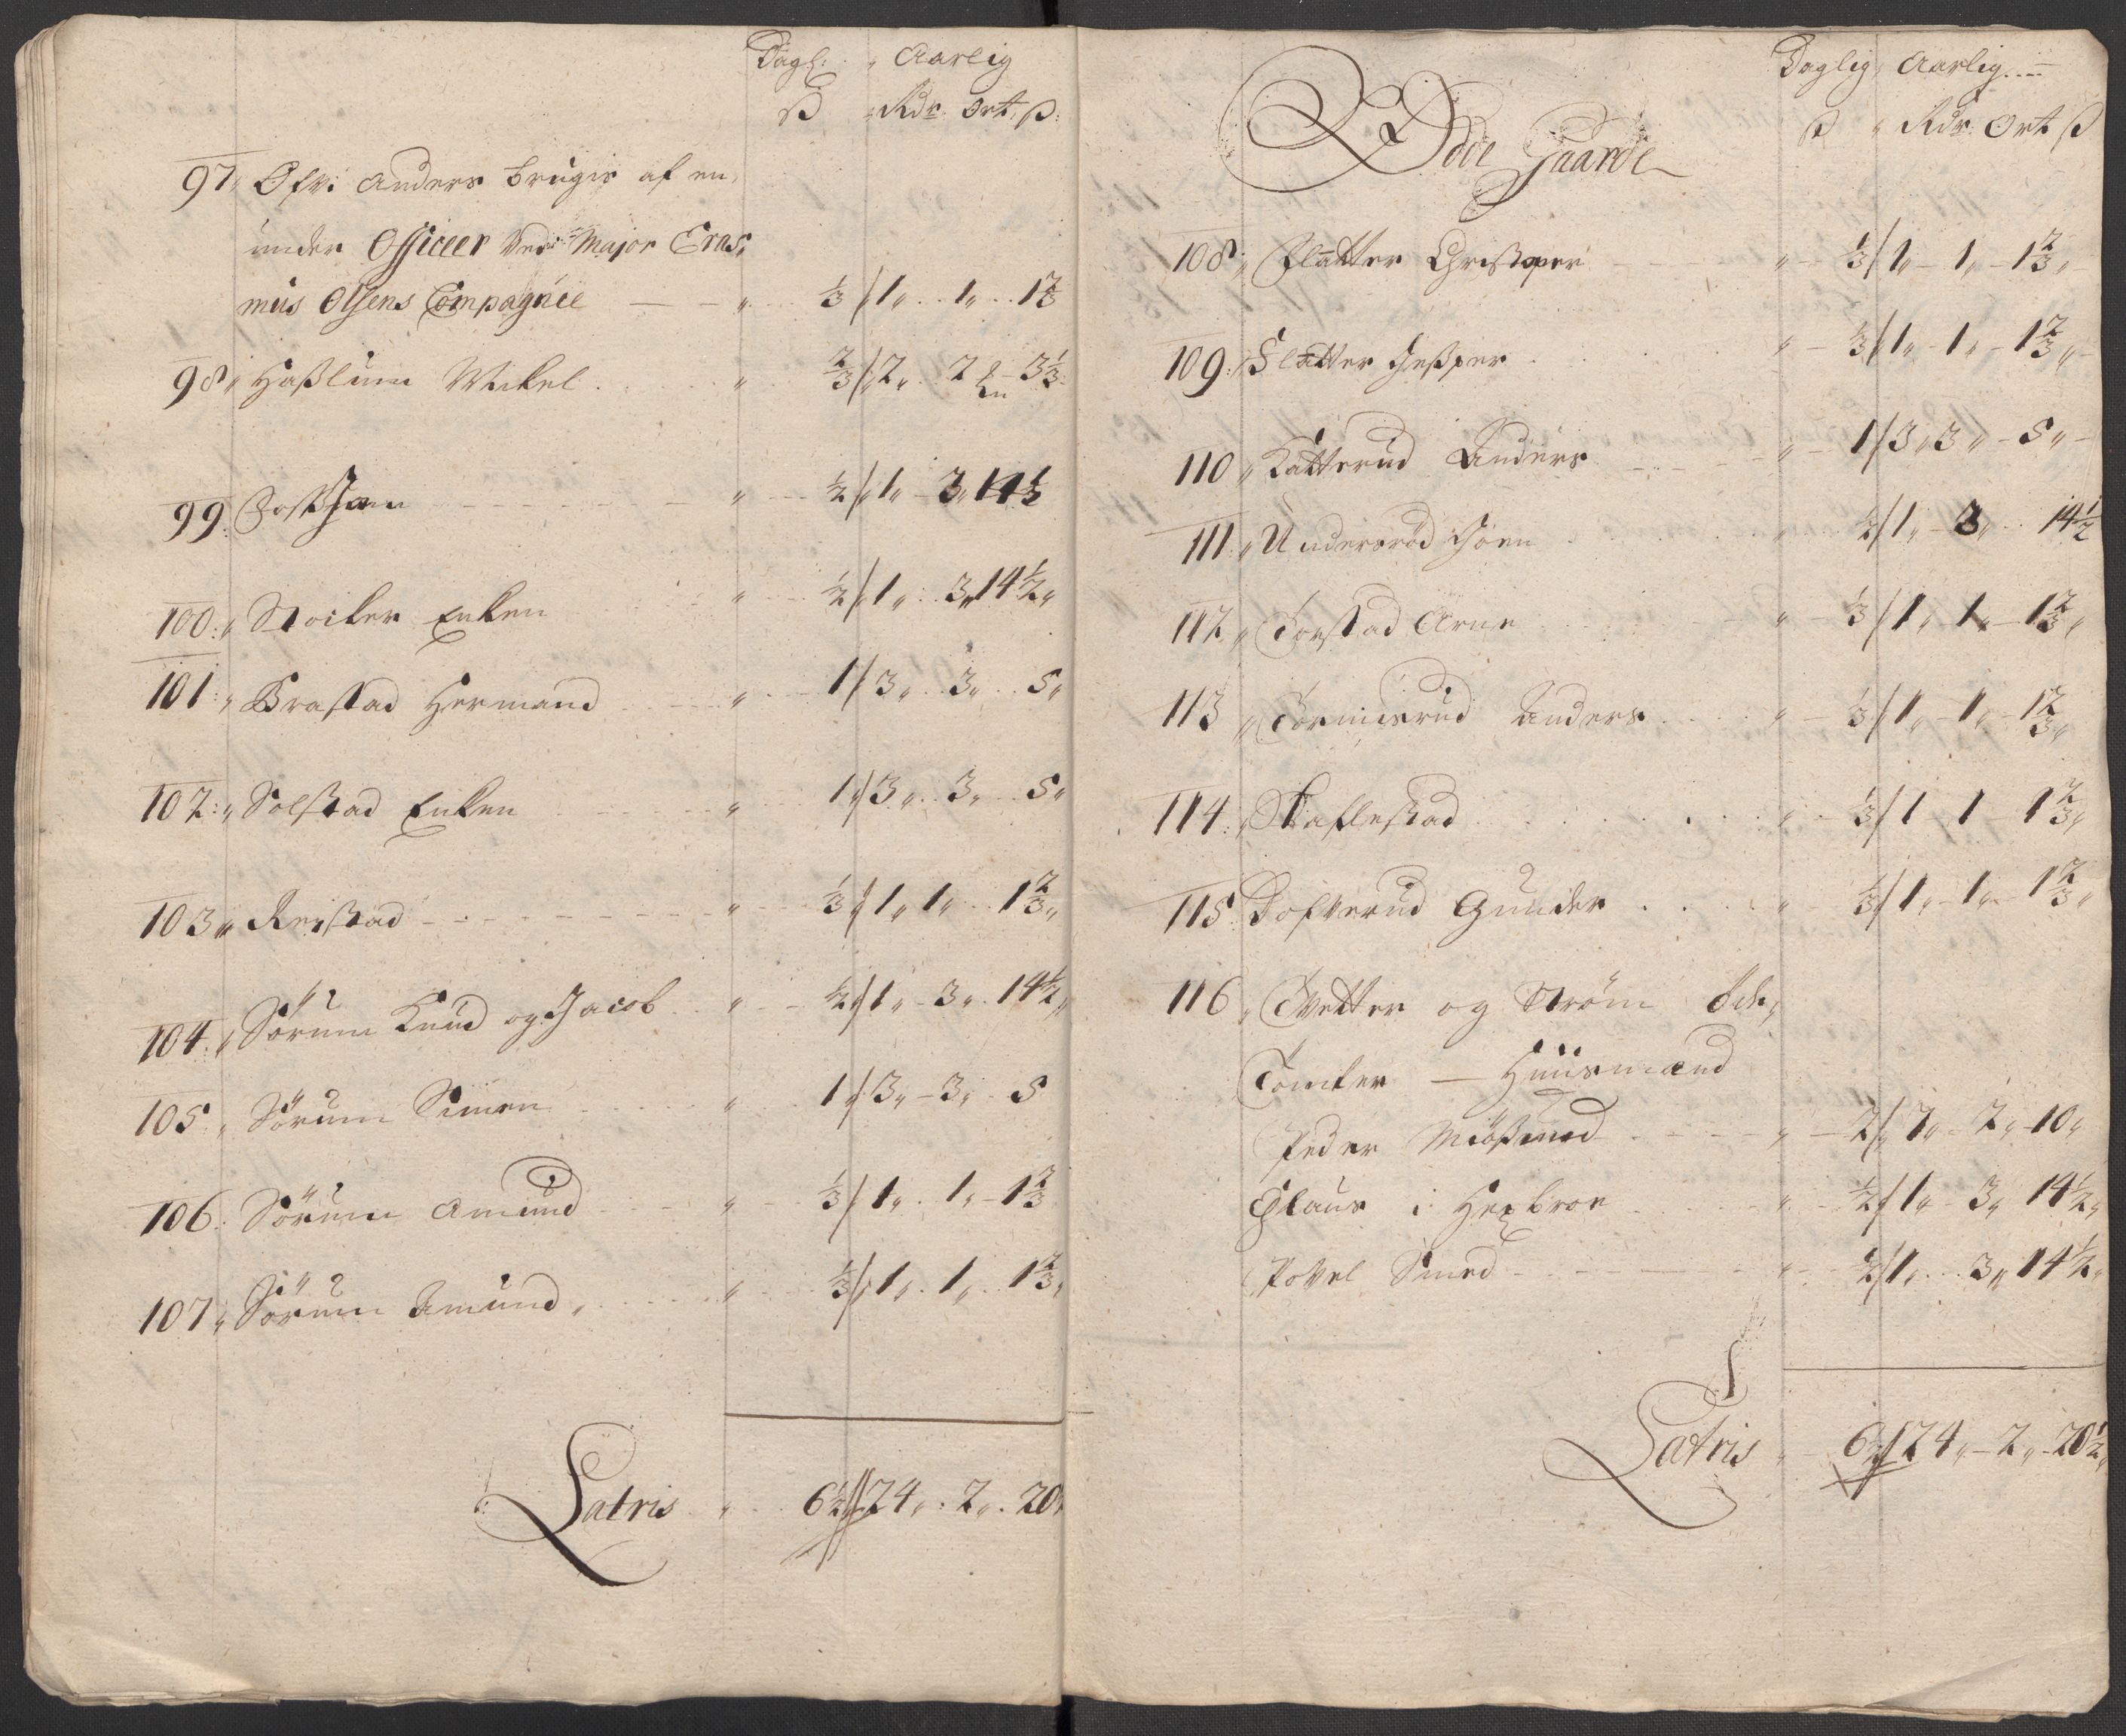 Dagl: Aarlig
ß Rdr Ort ß:
97 Øfri Anders brugis af en
under Officeer ved Major Eras,
mus Olsens Compagnie " 1/3 / 1 " 1 " 1 2/3
98 " Haßlum Mikel " 2/3 / 2 " 2 " 3 1/3
99 " 1/2 / 1 " 3 " 14 1/2
100 " Stocker Enken " 1/2 / 1 " 3 " 14 1/2 "
101 " Brastad Hermand " 1 / 3 " 3 " 5 "
102 " Solstad Enken " 1 / 3 " 3 " 5 "
103 " Reistad " 1/3 / 1 " 1 " 1 2/3 "
104 " Sörum Knud og Jacob " 1/2 / 1 " 3 " 14 1/2 "
105 " Sörum Simen " 1 / 3 " 3 " 5
106 " Sörum Amund " 1/3 / 1 " 1 " 1 2/3
107 " Sörum Amund " 1/3 / 1 " 1 " 1 2/3 "
Latris " 6 1/2 / 24 " 2 " 20
Daglig Aarlig
ß Rdr Ort ß
Øde Gaarde
108 " Flatter Christopher " 1/3 / 1 " 1 " 1 2/3 "
109 " Slatter Jesper " 1/3 / 1 " 1 " 1 2/3 "
110 " Katterud Anders " 1 / 3 " 3 " 5 "
111 " Undersrød Joen " 1/2 / 1 " 3 " 14 1/2
112 " Torstad Arne " 1/3 / 1 " 1 " 1 2/3 "
113 " Tormisrud Anders " 1/3 / 1 " 1 " 1 2/3 "
114 " Skaflestad " 1/3 / 1 1 1 2/3 "
115 Dofverud Gunder " 1/3 / 1 " 1 " 1 2/3 "
116 " Tvetter og Strøm
Tomter — Huusmænd
Peder " 2 / 7 " 2 " 10 "
Claus i Hexbroe " 1/2 / 1 " 3 " 14 1/2 "
Povel Smed " 1/2 / 1 " 3 " 14 1/2 "
Latris " 6 1/2 / 24 " 2 " 20 1/2 "